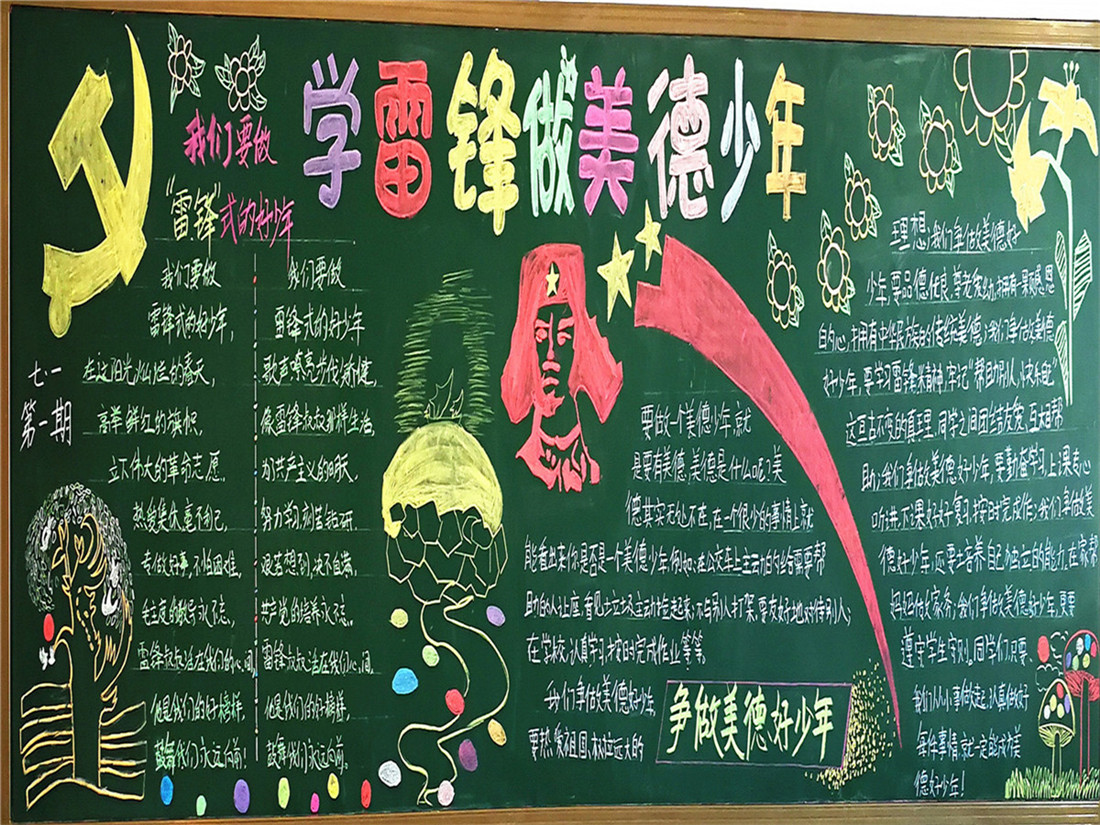 学雷锋做美德少年
我们要做
"雷锋"式的好少年
七·一
第一期
我们要做
雷锋式的好少年,
在这阳光灿烂的春天,
高举鲜红的旗帜
立下伟大的革命志愿。
热爱集体毫不利己,
专做好事,不怕困难。
毛主席的教导永不忘,
雷锋叔叔活在我们的心间
他是我们的好榜样,
鼓舞我们永远向前!
我们要做
雷锋式的好少年
歌声嘹亮步伐矫健,
像雷锋叔叔那样生活,
为共产主义的明天,
努力学习刻苦钻研.
艰苦想到,决不自满.
共产党的培养永不忘.
雷锋叔叔活在我们心间
他是我们的好榜样,
鼓舞我们永远向前。
要做一个美德少年就
是要有美德,美德是什么呢?美
德其实无处不在,在一个很小的事情上就
能看出来你是否是一个美德少年.例如:在公交车上主动的给需要帮
助的人让座.看见垃圾主动捡起来,不与别人打架,要友好地对待别人;
在学校,认真学习,按时完成作业等等。
我们争做美德好少年,
要热爱祖国,树立远大的
争做美德好少年
理想;我们争做美德好
少年,要品德优良,尊老爱幼,拥有一颗感恩
的心,拥有中华民族的传统美德;我们争做美德
好少年,要学习雷锋精神,牢记"帮助别人,快乐自己"
这亘古不变的真理,同学之间团结友爱,互相帮
助;我们争做美德好少年,要勤奋学习,上课专心
听讲,下课好好复习,按时完成作;我们争做美
德好少年,还要培养自己独立的能力,在家帮
妈妈做家务;我们争做美德好少年,更要
遵守学生守则。同学们,只要
我们从小事做起,认真做好
每件事情,就一定能成为美
德好少年!